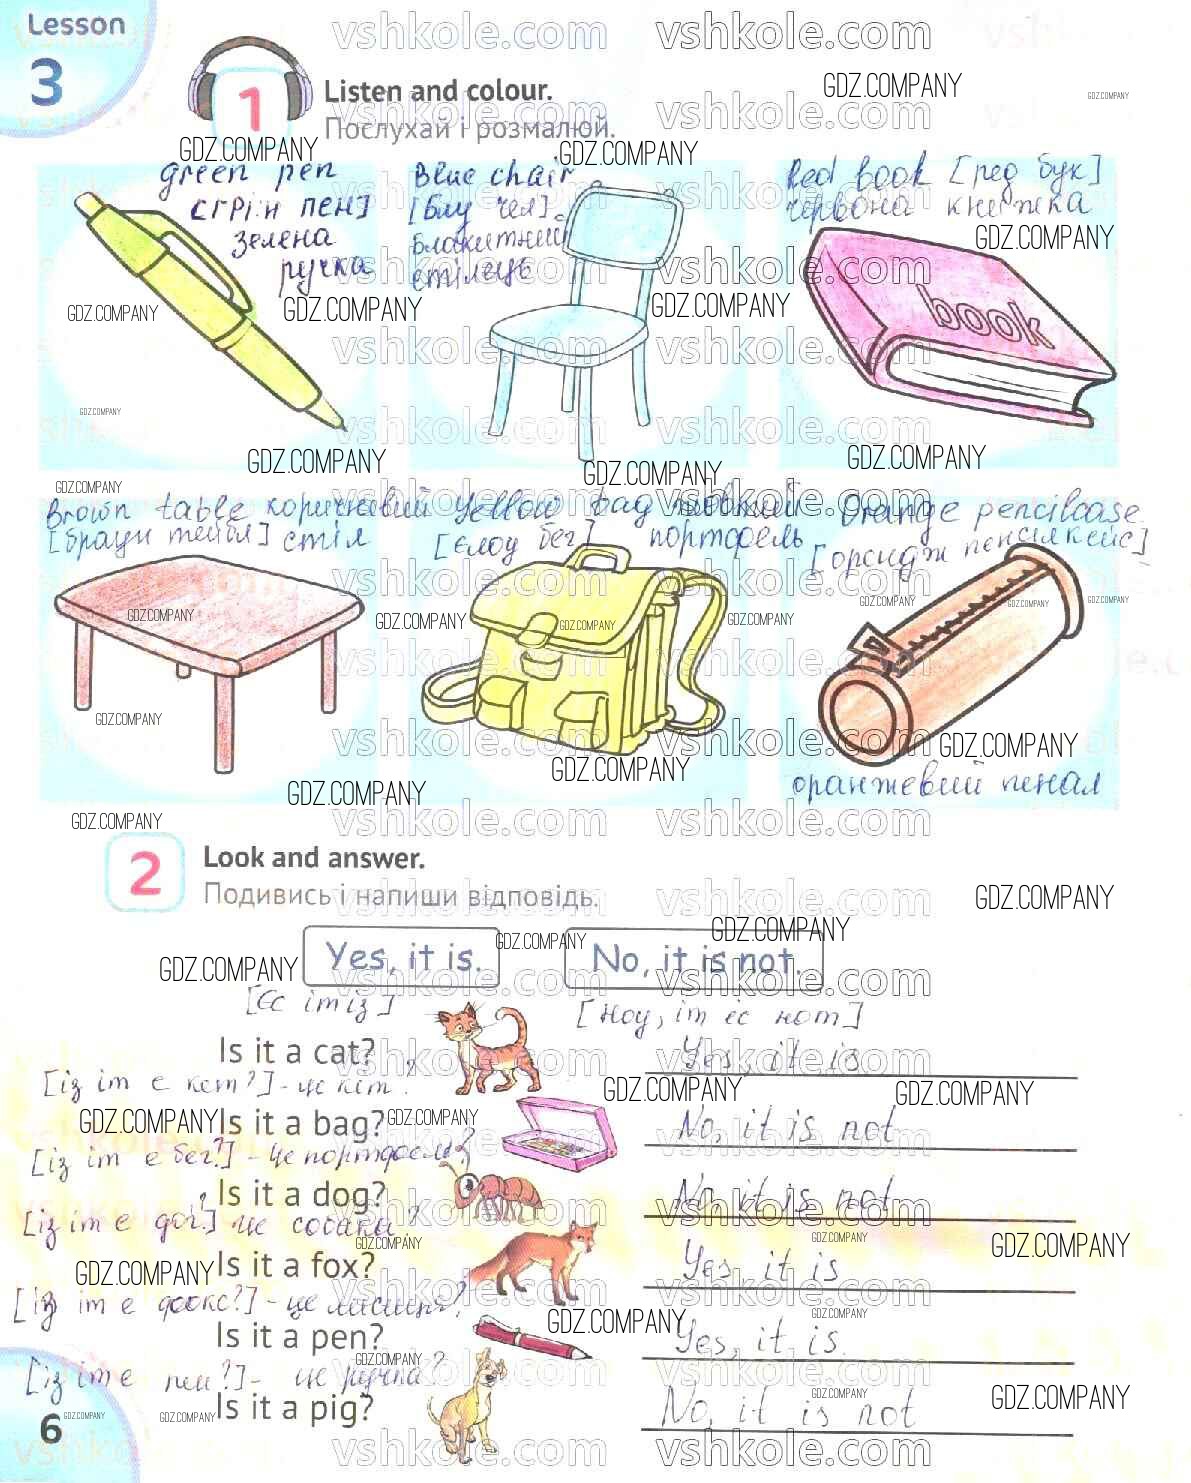 Lesson
3
1
Listen and colour.
Послухай і розмалюй.
green pen
[грін пен]
зелена
ручка
Blue chair
[блу чея]
блакитний
стілець
Red book [ред бук]
червона книжка
book
Brown table коричневий
[браун тейбл] стіл
Yellow bag жовтий
[єлоу бег] портфель
Orange pencilcase
[орендж пенсілкейс]
оранжевий пенал
2
Look and answer.
Подивись і напиши відповідь.
Yes, it is.
No, it is not.
[Єс іт із]
[Ноу, іт іс нот]
Is it a cat?
Yes, it is
[із іт е кет?] - це кіт?
Is it a bag?
No, it is not
[із іт е бег?] - це портфель?
Is it a dog?
No, it is not
[із іт е дог?] це собака?
Is it a fox?
Yes it is
[із іт е фокс?] - це лисиця?
Is it a pen?
Yes, it is.
[із іт е пен?] - це ручка?
Is it a pig?
No, it is not
6
vshkole.com
GDZ.COMPANY